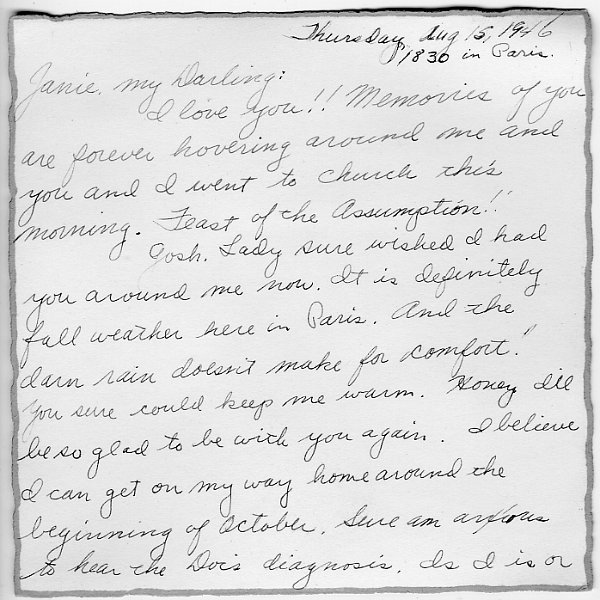 Thursday Aug 15, 1946
1830 in Paris.
Janie, my Darling:
I love you!! Memories of you
are forever hovering around me and
you and I went to church this
morning. Feast of the Assumption!!
Gosh, Lady sure wished I had
you around me now. It is definitely
fall weather here in Paris. And the
darn rain doesn't make for comfort!
You sure could keep me warm. Honey I'll
be so glad to be with you again. I believe
I can get on my way home around the
beginning of October. Sure am anxious
to hear the Doc's diagnosis. Is I is or